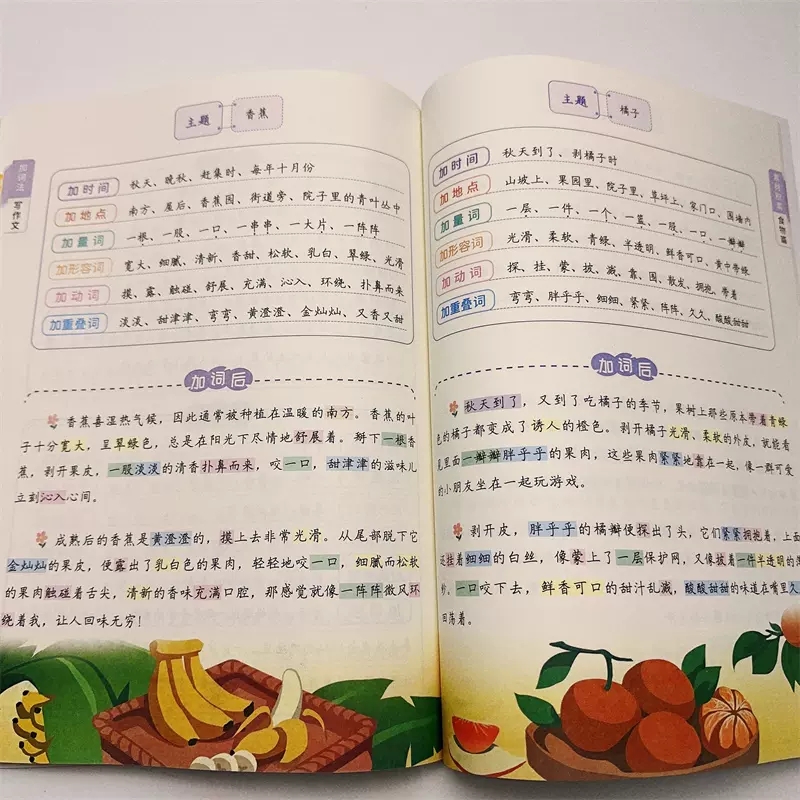 加词法
写作文
主题
香蕉
加时间 秋天、晚秋、赶集时、每年十月份
加地点 南方、屋后、香蕉园、街道旁、院子里的青叶丛中
加量词 一根、一股、一口、一串串、一大片、一阵阵
加形容词 宽大、细腻、清新、香甜、松软、乳白、翠绿、光滑
加动词 摸、露、触碰、舒展、充满、沁入、环绕、扑鼻而来
加重叠词 淡淡、甜津津、弯弯、黄澄澄、金灿灿、又香又甜
加词后
香蕉喜湿热气候，因此通常被种植在温暖的南方。香蕉的叶
子十分宽大，呈翠绿色，总是在阳光下尽情地舒展着。掰下一根香
蕉，剥开果皮，一股淡淡的清香扑鼻而来，咬一口，甜津津的滋味儿
立刻沁入心间。
成熟后的香蕉是黄澄澄的，摸上去非常光滑。从尾部脱下它
金灿灿的果皮，便露出了乳白色的果肉，轻轻地咬一口，细腻而松软
的果肉触碰着舌尖，清新的香味充满口腔，那感觉就像一阵阵微风环
绕着我，让人回味无穷！
主题
橘子
食物篇
加时间 秋天到了、剥橘子时
加地点 山坡上、果园里、院子里、草坪上、家门口、围墙内
加量词 一层、一件、一个、一篮、一股、一口、一瓣瓣
加形容词 光滑、柔软、青绿、半透明、鲜香可口、黄中带绿
加动词 探、挂、蒙、披、溅、靠、围、散发、拥抱、带着
加重叠词 弯弯、胖乎乎、细细、紧紧、阵阵、久久、酸酸甜甜
加词后
秋天到了，又到了吃橘子的季节，果树上那些原本带着青绿
色的橘子都变成了诱人的橙色。剥开橘子光滑、柔软的外皮，就能看
见里面一瓣瓣胖乎乎的果肉，这些果肉紧紧地靠在一起，像一群可爱
的小朋友坐在一起玩游戏。
剥开皮，胖乎乎的橘瓣便探出了头，它们紧紧拥抱着，上面
还挂着细细的白丝，像蒙上了一层保护网，又像披着一件半透明的薄
纱，一口咬下去，鲜香可口的甜汁乱溅，酸酸甜甜的味道在嘴里久
回荡着。